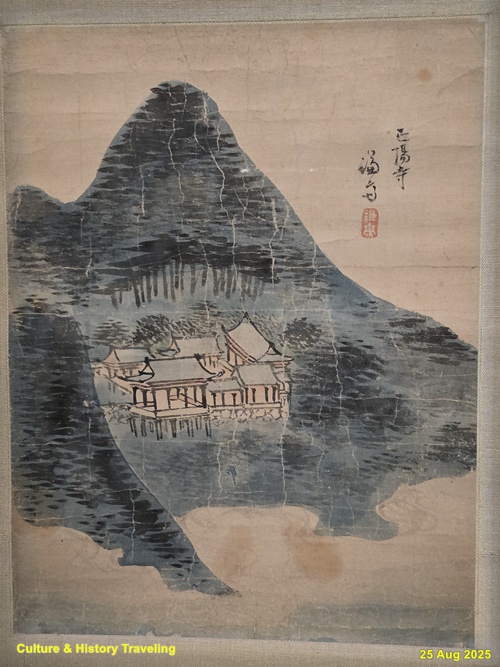 正陽寺
謙齋
Culture & History Traveling
25 Aug 2025